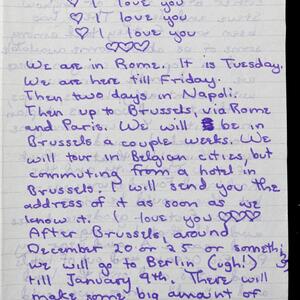 ♡ I love you
♡ I love you
♡ I love you
♡♡♡♡
We are in Rome. It is Tuesday.
We are here till Friday.
Then two days in Napoli.
Then up to Brussels, via Rome
and Paris. We will be in
Brussels a couple weeks. We
will tour in Belgian cities, but
commuting from a hotel in
Brussels. I will send you the
address of it as soon as we
know it. I love you ♡♡♡♡
After Brussels, around
December 20 or 25 or someth
we will go to Berlin (ugh!)
till January 9th. There will
make some big amount of